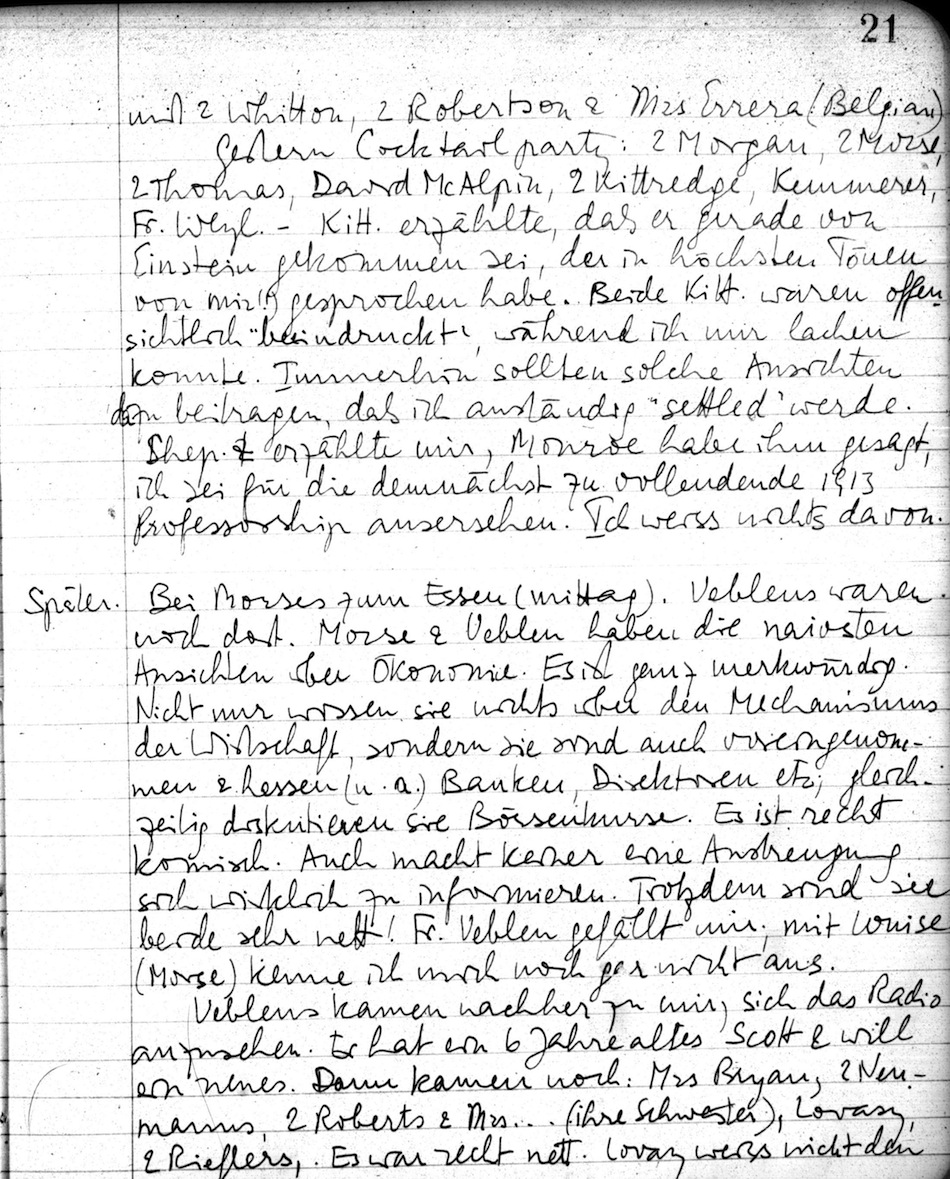 21
mit 2 Whitton, 2 Robertson & Mrs Errera (Belgian)
Gestern Cocktail party: 2 Morgan, 2 Morse,
2 Thomas, David McAlpin, 2 Kittredge, Kemmerer,
Fr. Weyl. - Kitt. erzählte, daß er gerade von
Einstein gekommen sei, der in höchsten Tönen
von mir(!!) gesprochen habe. Beide Kitt. waren offen-
sichtlich "beeindruckt", während ich nur lachen
konnte. Immerhin sollten solche Ansichten
dazu beitragen, daß ich anständig "settled" werde.
Shep. erzählte mir, Monroe habe ihm gesagt,
ich sei für die demnächst zu vollendende 1913
Professorship ausersehen. Ich weiss nichts davon.
Später. Bei Morses zum Essen (mittag). Veblens waren
noch dort. Morse & Veblen haben die naivsten
Ansichten über Ökonomie. Es ist ganz merkwürdig.
Nicht nur wissen sie nichts über den Mechanismus
der Wirtschaft, sondern sie sind auch voreingenom-
men & hassen (u. a.) Banken, Direktoren etc; gleich-
zeitig diskutieren sie Börsenkurse. Es ist recht
komisch. Auch macht keiner eine Anstrengung
sich wirklich zu informieren. Trotzdem sind sie
beide sehr nett! Fr. Veblen gefällt mir; mit Louise
(Morse) kenne ich mich noch gar nicht aus.
Veblens kamen nachher zu mir, sich das Radio
anzusehen. Er hat ein 6 Jahre altes Scott & will
ein neues. Dann kamen noch: Mrs Bryan, 2 Neu-
manns, 2 Roberts & Mrs... (ihre Schwester), Lovasy,
2 Rieflers,. Es war recht nett. Lovasy weiss nicht den